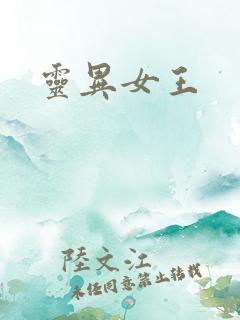 靈異女王
陸文江
未經同意禁止轉載